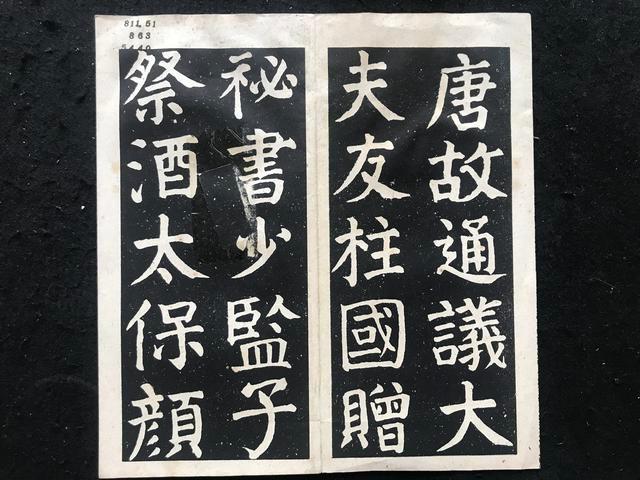 唐故通議大
夫友柱國贈
祕書少監子
祭酒太保顔
811.51
863
5440